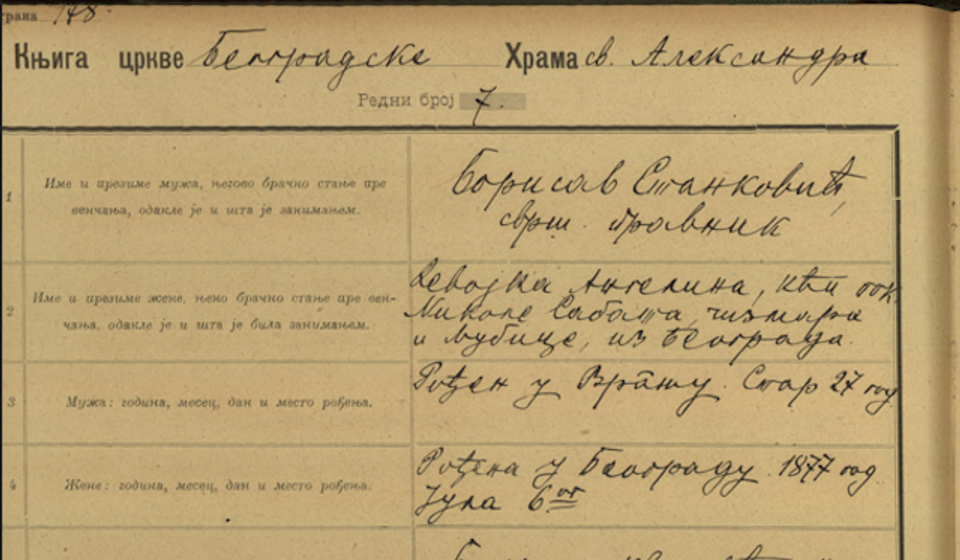 страна 148.
Књига цркве Београдске Храма св. Александра
Редни број 7.
1
Име и презиме мужа, његово брачно стање пре
венчања, одакле је и шта је занимањем.
Борисав Станковић,
сврш. правник
2
Име и презиме жене, њено брачно стање пре вен-
чања. одакле је и шта је била занимањем.
Девојка Ангелина, кћи пок.
Николе Сабата, чизмара
и Љубице, из Београда.
3
Мужа: година, месец, дан и место рођења.
Рођен у Врању. Стар 27 год
4
Жене: година, месец, дан и место рођења.
Рођена у Београду. 1877 год
Јула 6ог